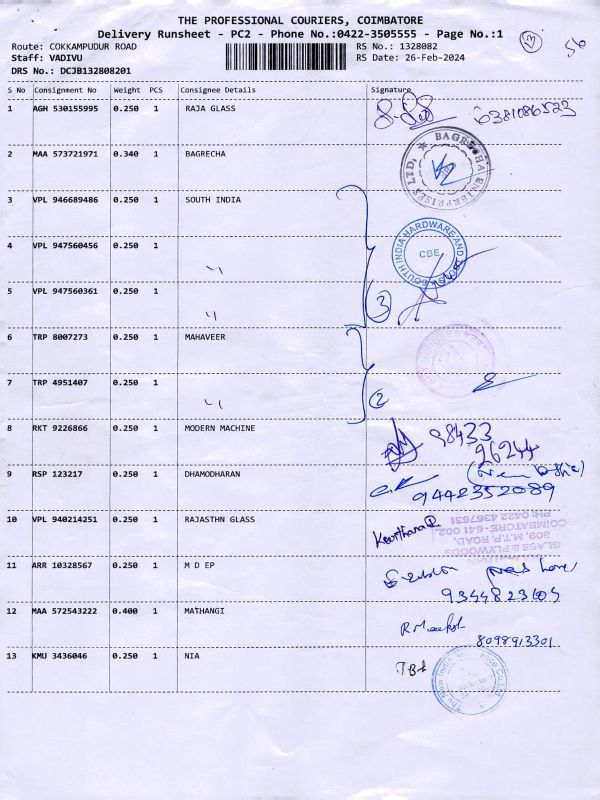 THE PROFESSIONAL COURIERS, COIMBATORE
Delivery Runsheet - PC2 - Phone No.:0422-3505555 - Page No.:1
Route: COKKAMPUDUR ROAD
RS No.: 1328082
Staff: VADIVU
RS Date: 26-Feb-2024
DRS No.: DCJB132808201
S No Consignment No Weight PCS Consignee Details Signature
1 AGH 530155995 0.250 1 RAJA GLASS 6381086523
2 MAA 573721971 0.340 1 BAGRECHA
BAGRECHA ENTERPRISES LTD.
3 VPL 946689486 0.250 1 SOUTH INDIA
SOUTH INDIA HARDWARE AND
CBE
4 VPL 947560456 0.250 1 〃
5 VPL 947560361 0.250 1 〃
3
6 TRP 8007273 0.250 1 MAHAVEER
7 TRP 4951407 0.250 1 〃
2
8 RKT 9226866 0.250 1 MODERN MACHINE 98433
96244
9 RSP 123217 0.250 1 DHAMODHARAN
9442352089
10 VPL 940214251 0.250 1 RAJASTHN GLASS Keerthana
GLASS & PLYWOODS
309, M.T.P. ROAD,
COIMBATORE - 641 002.
PH: 0422 4367631
11 ARR 10328567 0.250 1 M D EP
9344823605
12 MAA 572543222 0.400 1 MATHANGI
8098913301
13 KMU 3436046 0.250 1 NIA
The New India Assurance Co. Ltd.